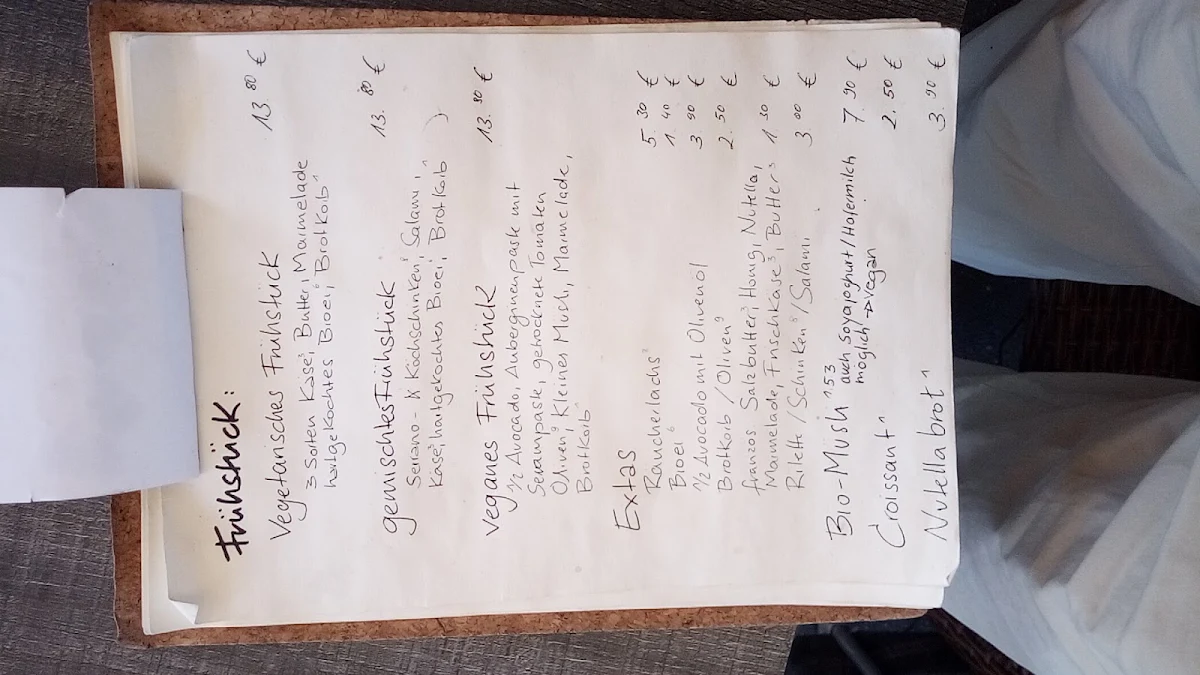 Frühstück:
Vegetarisches Frühstück 13.80 €
3 Sorten Käse³, Butter, Marmelade
hartgekochtes Bioei, Brotkorb¹
gemischtes Frühstück 13.80 €
Serano- & Kochschinken, Salami,
Käse³, hartgekochtes Bioei, Brotkorb¹
veganes Frühstück 13.80 €
1/2 Avocado, Auberginenpaste mit
Sesampaste, getrocknete Tomaten
Oliven⁹, Kleines Müsli, Marmelade,
Brotkorb¹
Extas
Räucherlachs² 5.30 €
Bioei⁶ 1.40 €
1/2 Avocado mit Olivenöl 3.90 €
Brotkorb/Oliven⁹ 2.50 €
französ Salzbutter, Honig, Nutella,
Marmelade, Frischkäse³, Butter³ 1.30 €
Rilette/Schinken/Salami 3.00 €
Bio-Müsli 1,5,3 7.90 €
auch Soyajoghurt/Hafermilch
möglich → vegan
Croissant¹ 2.50 €
Nutellabrot¹ 3.90 €